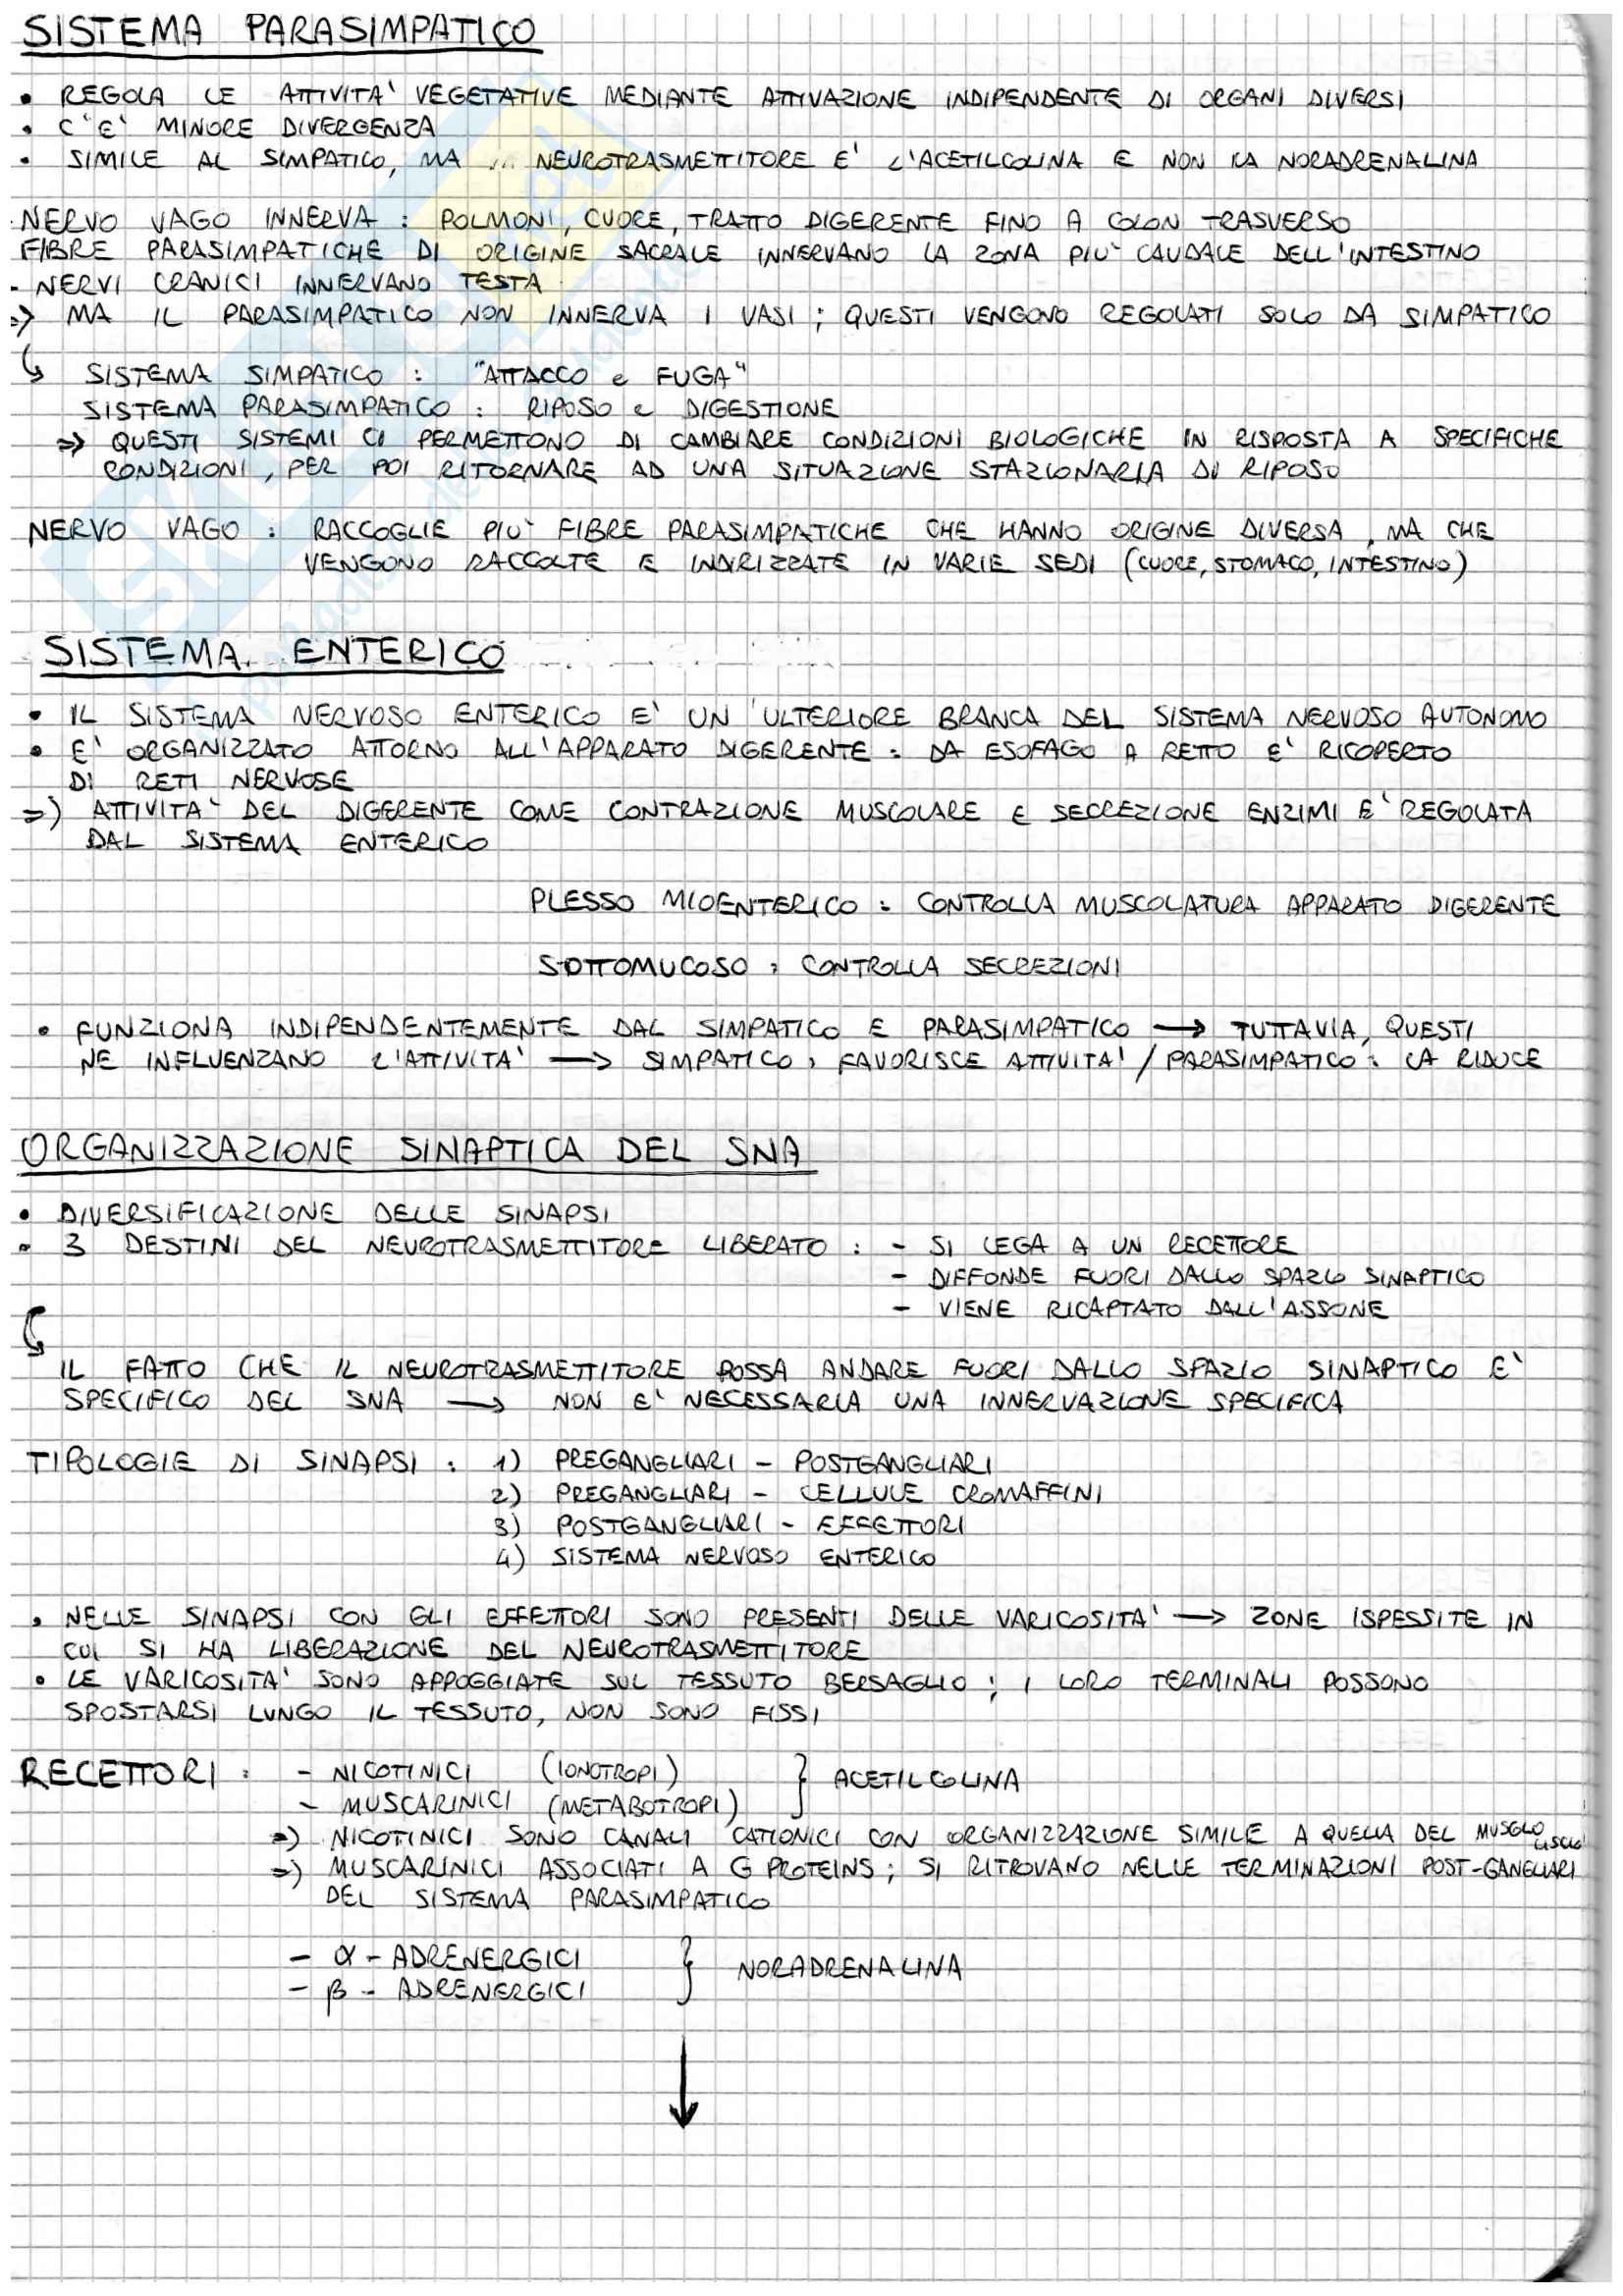 SISTEMA PARASIMPATICO
• REGOLA LE ATTIVITA' VEGETATIVE MEDIANTE ATTIVAZIONE INDIPENDENTE DI ORGANI DIVERSI
• C'E' MINORE DIVERGENZA
• SIMILE AL SIMPATICO, MA ... NEUROTRASMETTITORE E' L'ACETILCOLINA E NON LA NORADRENALINA
- NERVO VAGO INNERVA : POLMONI, CUORE, TRATTO DIGERENTE FINO A COLON TRASVERSO
FIBRE PARASIMPATICHE DI ORIGINE SACRALE INNERVANO LA ZONA PIU' CAUDALE DELL'INTESTINO
- NERVI CRANICI INNERVANO TESTA
=> MA IL PARASIMPATICO NON INNERVA I VASI ; QUESTI VENGONO REGOLATI SOLO DA SIMPATICO
↳ SISTEMA SIMPATICO : "ATTACCO e FUGA"
SISTEMA PARASIMPATICO : RIPOSO e DIGESTIONE
=> QUESTI SISTEMI CI PERMETTONO DI CAMBIARE CONDIZIONI BIOLOGICHE IN RISPOSTA A SPECIFICHE
CONDIZIONI, PER POI RITORNARE AD UNA SITUAZIONE STAZIONARIA DI RIPOSO
NERVO VAGO : RACCOGLIE PIU' FIBRE PARASIMPATICHE CHE HANNO ORIGINE DIVERSA, MA CHE
VENGONO RACCOLTE E INDIRIZZATE IN VARIE SEDI (CUORE, STOMACO, INTESTINO)
SISTEMA ENTERICO
• IL SISTEMA NERVOSO ENTERICO E' UN'ULTERIORE BRANCA DEL SISTEMA NERVOSO AUTONOMO
• E' ORGANIZZATO ATTORNO ALL'APPARATO DIGERENTE : DA ESOFAGO A RETTO E' RICOPERTO
DI RETI NERVOSE
=> ATTIVITA' DEL DIGERENTE COME CONTRAZIONE MUSCOLARE E SECREZIONE ENZIMI E' REGOLATA
DAL SISTEMA ENTERICO
PLESSO MIOENTERICO : CONTROLLA MUSCOLATURA APPARATO DIGERENTE
SOTTOMUCOSO : CONTROLLA SECREZIONI
• FUNZIONA INDIPENDENTEMENTE DAL SIMPATICO E PARASIMPATICO → TUTTAVIA, QUESTI
NE INFLUENZANO L'ATTIVITA' → SIMPATICO : FAVORISCE ATTIVITA' / PARASIMPATICO : LA RIDUCE
ORGANIZZAZIONE SINAPTICA DEL SNA
• DIVERSIFICAZIONE DELLE SINAPSI
• 3 DESTINI DEL NEUROTRASMETTITORE LIBERATO : - SI LEGA A UN RECETTORE
- DIFFONDE FUORI DALLO SPAZIO SINAPTICO
- VIENE RICAPTATO DALL'ASSONE
↳
IL FATTO CHE IL NEUROTRASMETTITORE POSSA ANDARE FUORI DALLO SPAZIO SINAPTICO E'
SPECIFICO DEL SNA → NON E' NECESSARIA UNA INNERVAZIONE SPECIFICA
TIPOLOGIE DI SINAPSI : 1) PREGANGLIARI - POSTGANGLIARI
2) PREGANGLIARI - CELLULE CROMAFFINI
3) POSTGANGLIARI - EFFETTORI
4) SISTEMA NERVOSO ENTERICO
• NELLE SINAPSI CON GLI EFFETTORI SONO PRESENTI DELLE VARICOSITA' → ZONE ISPESSITE IN
CUI SI HA LIBERAZIONE DEL NEUROTRASMETTITORE
• LE VARICOSITA' SONO APPOGGIATE SUL TESSUTO BERSAGLIO ; I LORO TERMINALI POSSONO
SPOSTARSI LUNGO IL TESSUTO, NON SONO FISSI
RECETTORI : - NICOTINICI (IONOTROPI) } ACETILCOLINA
- MUSCARINICI (METABOTROPI)
=> NICOTINICI SONO CANALI CATIONICI CON ORGANIZZAZIONE SIMILE A QUELLA DEL MUSCOLO LISCIO
=> MUSCARINICI ASSOCIATI A G PROTEINS ; SI RITROVANO NELLE TERMINAZIONI POST-GANGLIARI
DEL SISTEMA PARASIMPATICO
- α - ADRENERGICI } NORADRENALINA
- β - ADRENERGICI
↓